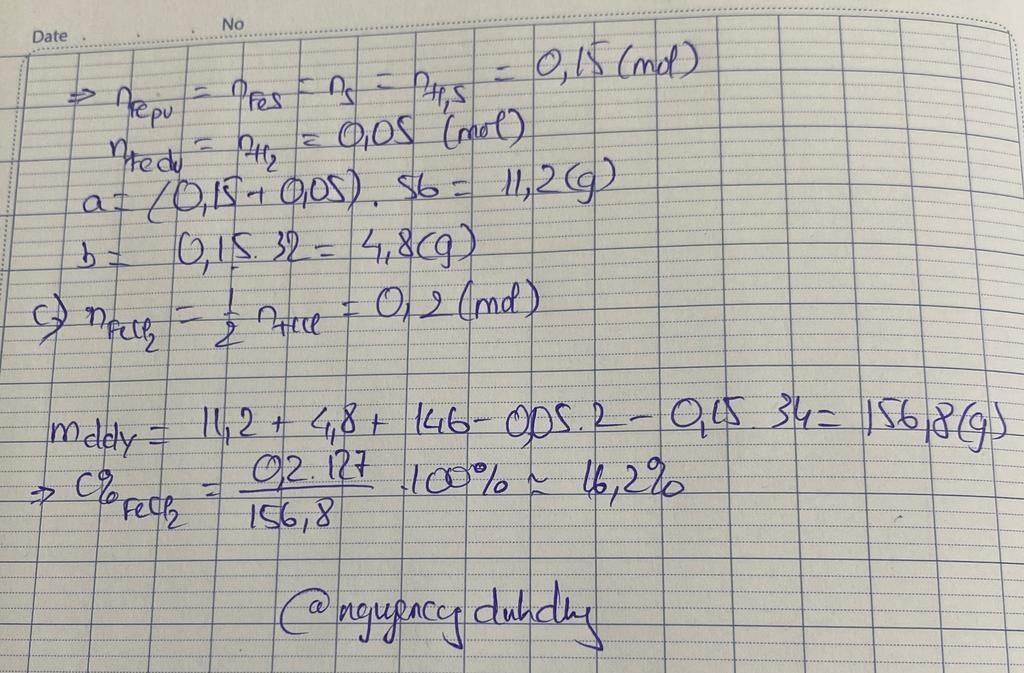 Date No
⇒ nFepư = nFeS = nS = nH2S = 0,15 (mol)
nFedư = nH2 = 0,05 (mol)
a = (0,15 + 0,05). 56 = 11,2 (g)
b = 0,15. 32 = 4,8 (g)
c) nFeCl2 = 1/2 nHCl = 0,2 (mol)
mddY = 11,2 + 4,8 + 146 - 0,05. 2 - 0,15. 34 = 156,8 (g)
⇒ C%FeCl2 = 0,2. 127 / 156,8 . 100% ≈ 16,2%